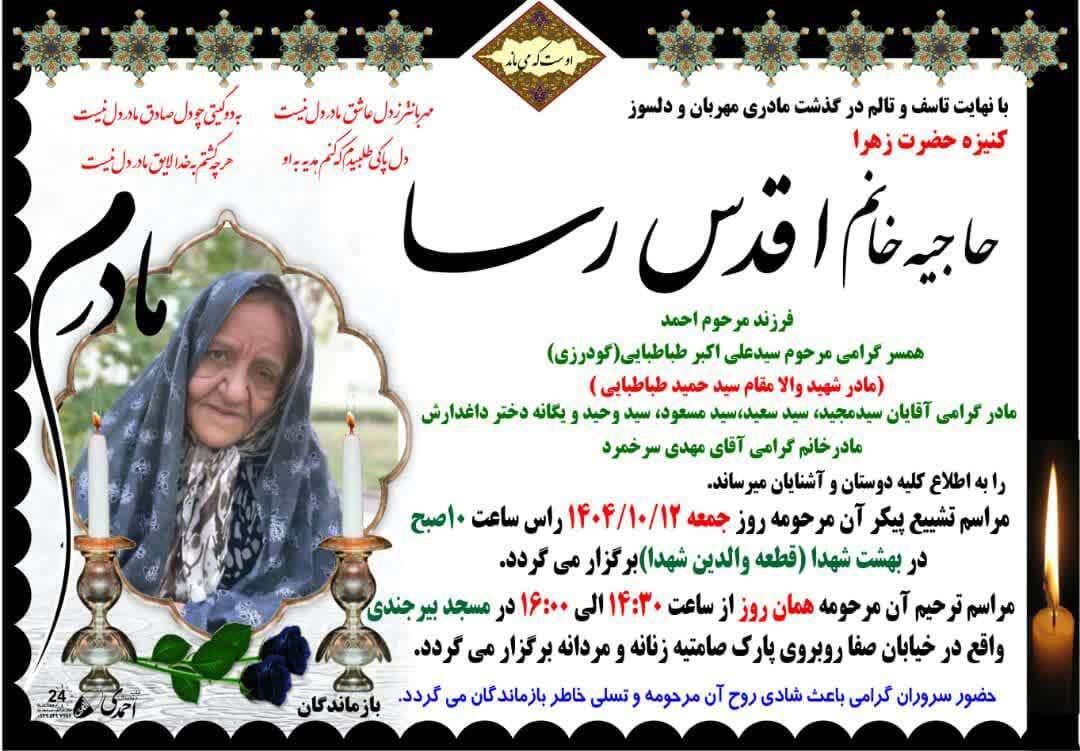 اوست که می ماند
با نهایت تاسف و تالم در گذشت مادری مهربان و دلسوز
کنیزه حضرت زهرا
مهربانتر ز دل عاشق مادر دل نیست
به دو گیتی چو دل صادق مادر دل نیست
دل پاکی طلبیدم که کنم هدیه به او
هر چه گشتم به خدا لایق مادر دل نیست
حاجیه خانم اقدس رسا
مادرم
فرزند مرحوم احمد
همسر گرامی مرحوم سیدعلی اکبر طباطبایی(گودرزی)
(مادر شهید والا مقام سید حمید طباطبایی )
مادر گرامی آقایان سیدمجید، سید سعید،سید مسعود، سید وحید و یگانه دختر داغدارش
مادرخانم گرامی آقای مهدی سرخمرد
را به اطلاع کلیه دوستان و آشنایان میرساند.
مراسم تشییع پیکر آن مرحومه روز جمعه ۱۴۰۴/۱۰/۱۲ راس ساعت ۱۰صبح
در بهشت شهدا (قطعه والدین شهدا)برگزار می گردد.
مراسم ترحیم آن مرحومه همان روز از ساعت ۱۴:۳۰ الی ۱۶:۰۰ در مسجد بیرجندی
واقع در خیابان صفا روبروی پارک صامتیه زنانه و مردانه برگزار می گردد.
حضور سروران گرامی باعث شادی روح آن مرحومه و تسلی خاطر بازماندگان می گردد.
بازماندگان
احمدی
24